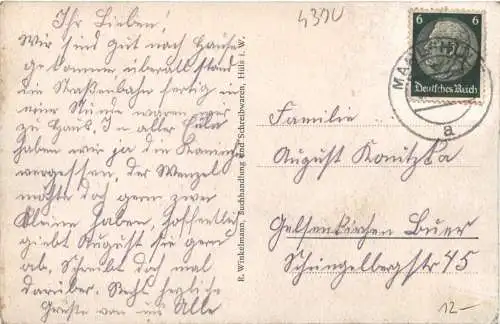 Ihr Lieben!
Wir sind gut nach Hause
gekommen überall stand
die Straßenbahn fertig in
einer Stunde waren wir
zu Haus. In aller Eile
haben wir ja die Kaninchen
vergessen, der Wenzel
möchte doch gern zwei
kleine haben, hoffentlich
giebt August sie gern
ab. Schreibt doch mal
darüber. Recht herzliche
Grüße von uns Alle
R. Winkelmann, Buchhandlung und Schreibwaren, Hüls i. W.
4390
6 6
Deutsches Reich
MA
a
Familie
August Konitzka
Gelsenkirchen Buer
Schüngelbergstr 45
12-